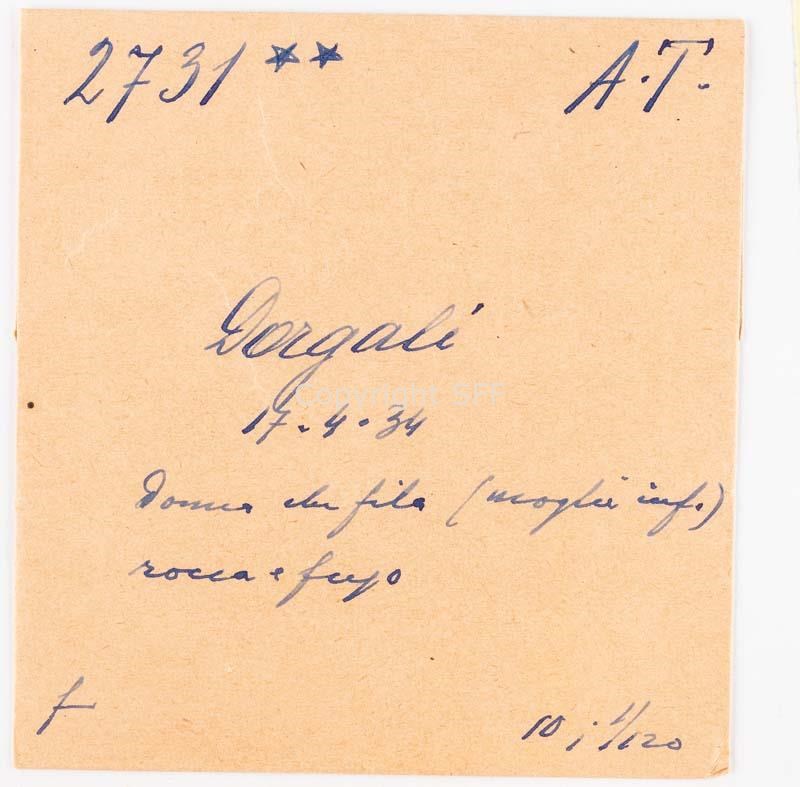 2731 ** A.T.
Dorgali
Copyright SFF
17.4.34
Donna che fila (moglie inf.)
rocca e fuso
f
10 ; 1/120